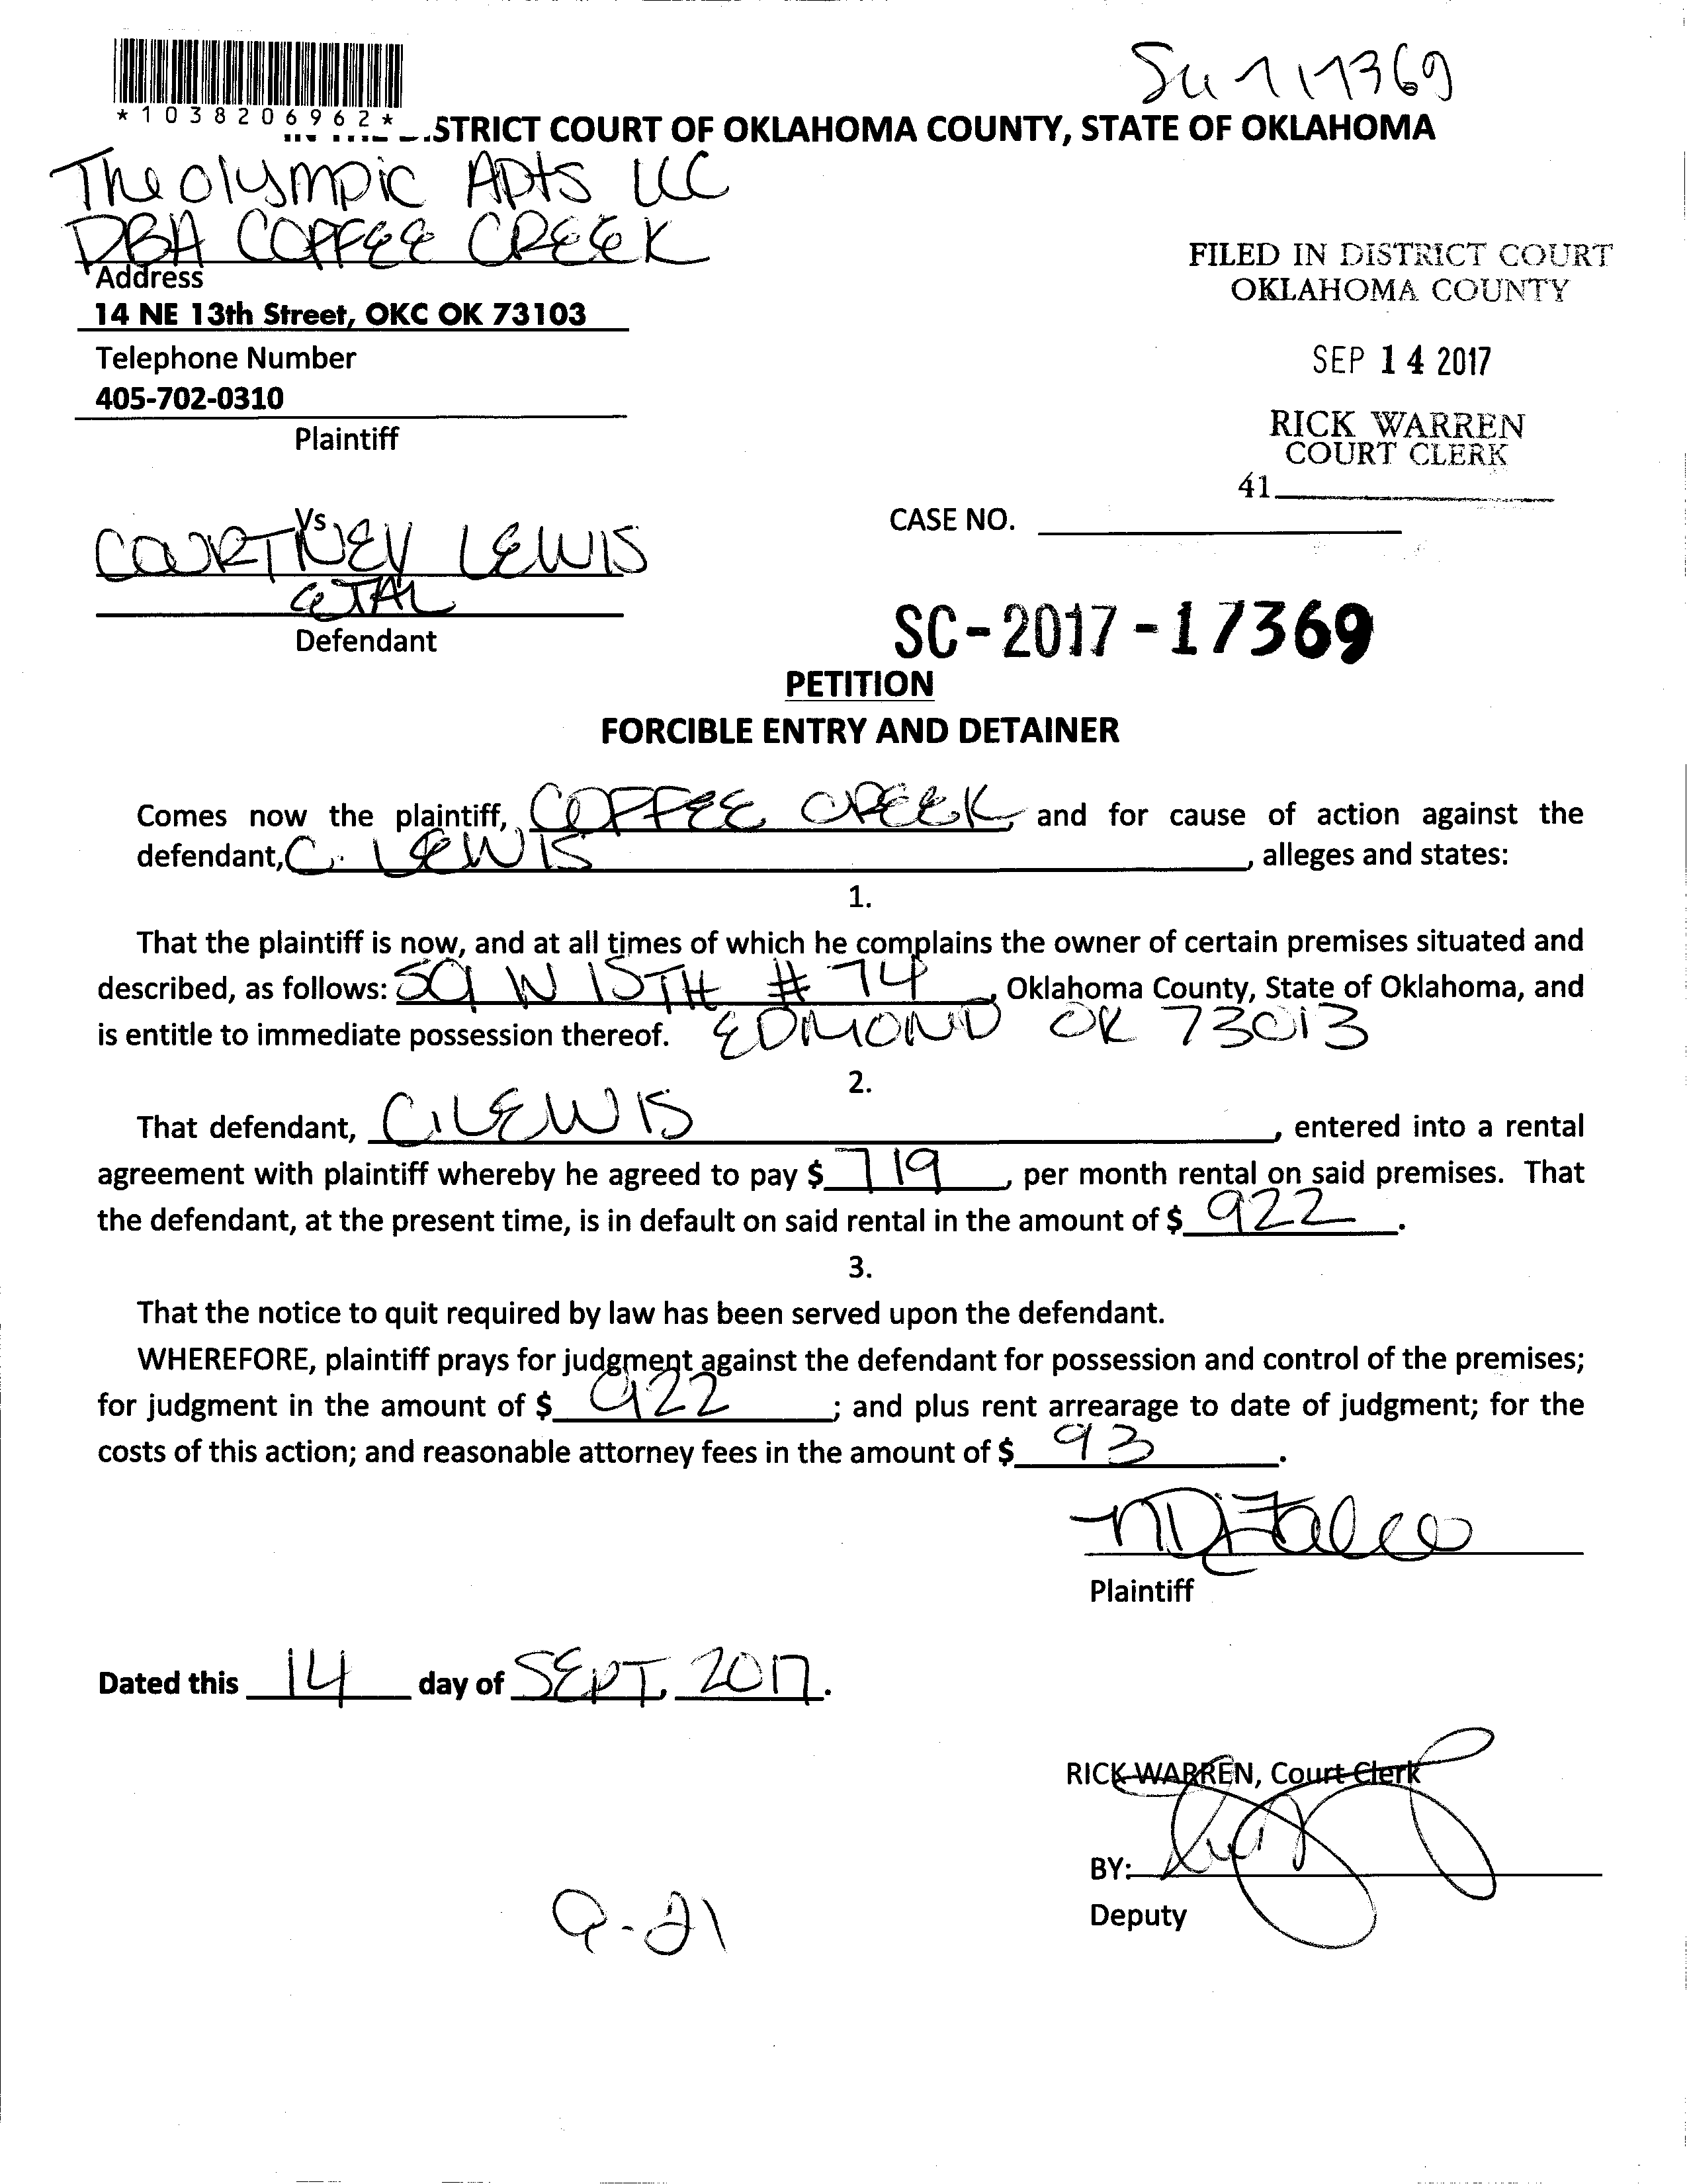 *1038206962*
STRICT COURT OF OKLAHOMA COUNTY, STATE OF OKLAHOMA
The Olympic Apts LLC
DBA COFFEE CREEK
Address
14 NE 13th Street, OKC OK 73103
Telephone Number
405-702-0310
Plaintiff
FILED IN DISTRICT COURT
OKLAHOMA COUNTY
SEP 14 2017
RICK WARREN
COURT CLERK
41
Vs
COURTNEY LEWIS
ETAL
Defendant
CASE NO.
SC-2017-17369
PETITION
FORCIBLE ENTRY AND DETAINER
Comes now the plaintiff, COFFEE CREEK, and for cause of action against the
defendant, C. LEWIS, alleges and states:
1.
That the plaintiff is now, and at all times of which he complains the owner of certain premises situated and
described, as follows: W 15TH # 74, Oklahoma County, State of Oklahoma, and
is entitle to immediate possession thereof. EDMOND OK 73013
2.
That defendant, C. LEWIS, entered into a rental
agreement with plaintiff whereby he agreed to pay $ 719, per month rental on said premises. That
the defendant, at the present time, is in default on said rental in the amount of $ 922.
3.
That the notice to quit required by law has been served upon the defendant.
WHEREFORE, plaintiff prays for judgment against the defendant for possession and control of the premises;
for judgment in the amount of $ 922; and plus rent arrearage to date of judgment; for the
costs of this action; and reasonable attorney fees in the amount of $ 93.
Plaintiff
Dated this 14 day of SEPT. 2017.
RICK WARREN, Court Clerk
BY:
Deputy
9-21